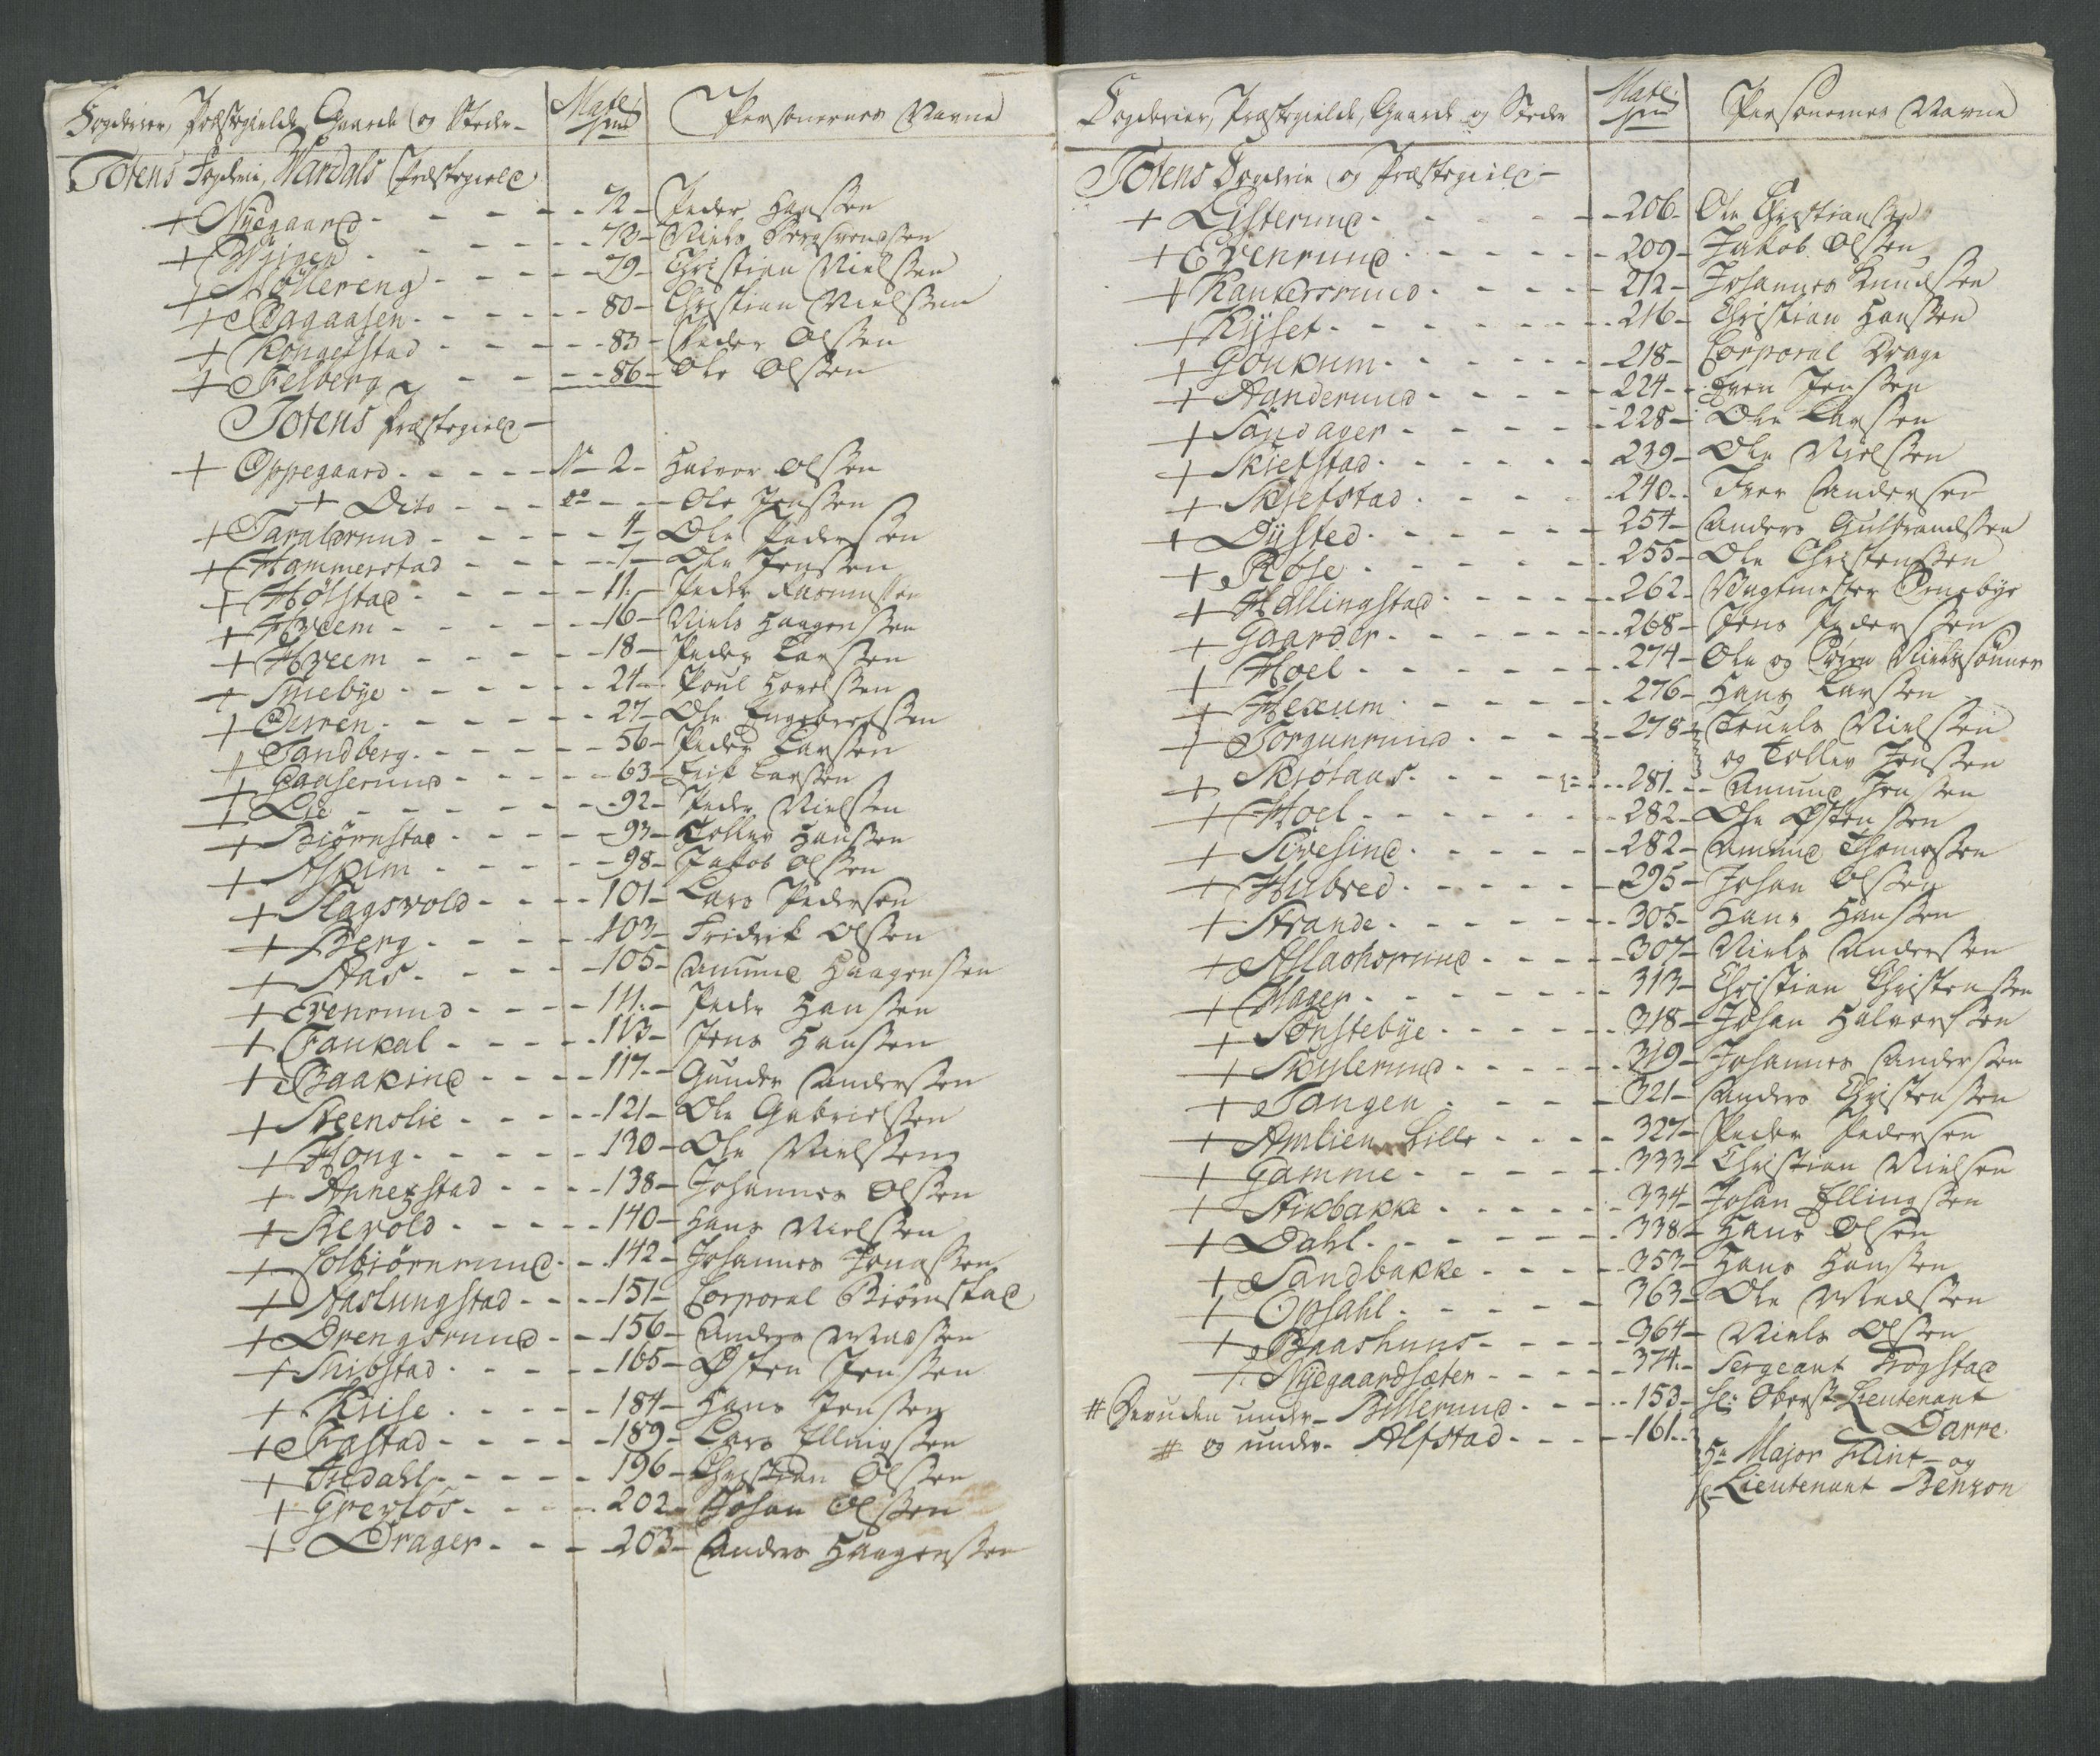 Fogderier, Præstegielde, Gaarde og Steder - Matr: No Personernes Navne
Totens Fogderie, Wardals Præstegield
+ Nÿegaard - - - - - 72 - Peder Hanssen
+ - - - - - 73 - Niels Bergsvendsen
+ Möllereng - - - - 79 - Christian Nielssen
+ Aagaasen - - - - - 80 - Christian Nielssen
+ Kongelstad - - - - 83 - Peder Olssen
+ Felberg - - - - 86 - Ole Olssen
Totens Præstegield -
+ Oppegaard - - - - No - 2 - Halvor Olssen
+ Dito - - - do - - - Ole Jenssen
+ Taralsrund - - - - - 4 - Ole Pederssen
+ Hammerstad - - - - 7 - Ole Jenssen
+ Hølstad - - - - - 11 - Peder Rasmussen
+ Hveem - - - - - 16 - Niels Haagenssen
+ Hveem - - - - - 18 - Peder Larssen
+ Smebÿe - - - - - 24 - Poul Hovelssen
+ Deiren - - - - - 27 - Ole Engebretssen
+ Sandberg - - - - - 56 - Peder Larssen
+ Gaaserund - - - - 63 - Erik Larssen
+ Lie - - - - - - 92 - Peder Nielssen
+ Biørnstad - - - - 93 - Tollev Hanssen
+ Askim - - - - - 98 - Jakob Olssen
+ Flagsvold - - - - 101 - Lars Pedersen
+ Berg - - - - - 103 - Fridrik Olssen
+ Aas - - - - - 105 - Amund Haagensen
+ Evenrund - - - - 111 - Peder Hanssen
+ Faukal - - - - - 113 - Jens Hanssen
+ Baakind - - - - 117 - Gunder Anderssen
+ Steenslie - - - - 121 - Ole Gabrielssen
+ Hong - - - - - 130 - Ole Nielssen
+ Annexstad - - - - 138 - Johannes Olssen
+ Revold - - - - - 140 - Hans Nielssen
+ Kolbiørnrund - - 142 - Johannes Jonassen
+ Aaslungstad - - - 151 - Corporal Biørnstad
+ Drengsrund - - 156 - Anders Madssen
+ Snibstad - - - - - 165 - Østen Jenssen
+ Krise - - - - - 184 - Hans Jenssen
+ Fastad - - - - - 189 - Lars Ellingssen
+ Stedahl - - - - - 196 - Christian Olssen
+ Grevløs - - - - 202 - Johan Olssen
+ Drager - - - - 203 - Anders Haagenssen
Fogderier, Præstegielde, Gaarde og Steder Matr: No Personernes Navne
Totens Fogderie og Præstegield -
+ Listerund - - - - - 206 - Ole Christiansen
+ Evenrund - - - - - 209 - Jakob Olssen
+ Kankersrund - - - - 212 - Johannes Knudssen
+ Rÿset - - - - - - 216 - Christian Hanssen
+ Goukum - - - - - 218 - Corporal Drage
+ Aanderund - - - - 224 - Even Jenssen
+ Söndager - - - - - 228 - Ole Larssen
+ Skiefstad - - - - - 239 - Ole Nielssen
+ Skiefstad - - - - 240 - Iver Andersen
+ Dÿsted - - - - - 254 - Anders Gulbrandssen
+ Rose - - - - - 255 - Ole Christenssen
+ Hallingstad - - - - - 262 - Vagtmester Smebÿe
+ Gaarder - - - - - 268 - Jens Pederssen
+ Hoel - - - - - - 274 - Ole og Søren Nielssönner
+ Hexum - - - - - 276 - Hans Larssen
+ Torgunrund - - - - 278 - Truels Nielssen
og Tollev Jenssen
+ Skiølaas - - - - - 281 - Amund Jenssen
+ Hoel - - - - - - 282 - Ole Østenssen
+ Sivesind - - - - - 282 - Amund Thomessen
+ Hubred - - - - - 295 - Johan Olssen
+ Strande - - - - - - 305 - Hans Hanssen
+ - - - - 307 - Niels Anderssen
+ Hager - - - - - - 313 - Christian Christenssen
+ Sönstebÿe - - - - - 318 - Johan Halvorssen
+ Skulerund - - - - - 319 - Johannes Anderssen
+ Tangen - - - - - 321 - Anders Christenssen
+ Amlien Lille - - - - 327 - Peder Pedersen
+ Gamme - - - - - 333 - Christian Nielsen
+ Stikbakke - - - - - 334 - Johan Ellingssen
+ Dahl - - - - - - 338 - Hans Olsen
+ Sandbakke - - - - 353 - Hans Hanssen
+ Opsahl - - - - - 363 - Ole Madssen
+ Baashuus - - - - 364 - Niels Olssen
+ Nÿegaardsæter - - - - 374 - Sergeant Rogstad
# Desuden under Billerund - - - 153 - Hr: Oberst-Lieutenant
# og under Alfstad - - - - 161 - Darre
Hr Major Flint - og
Hr Lieutenant Benzon